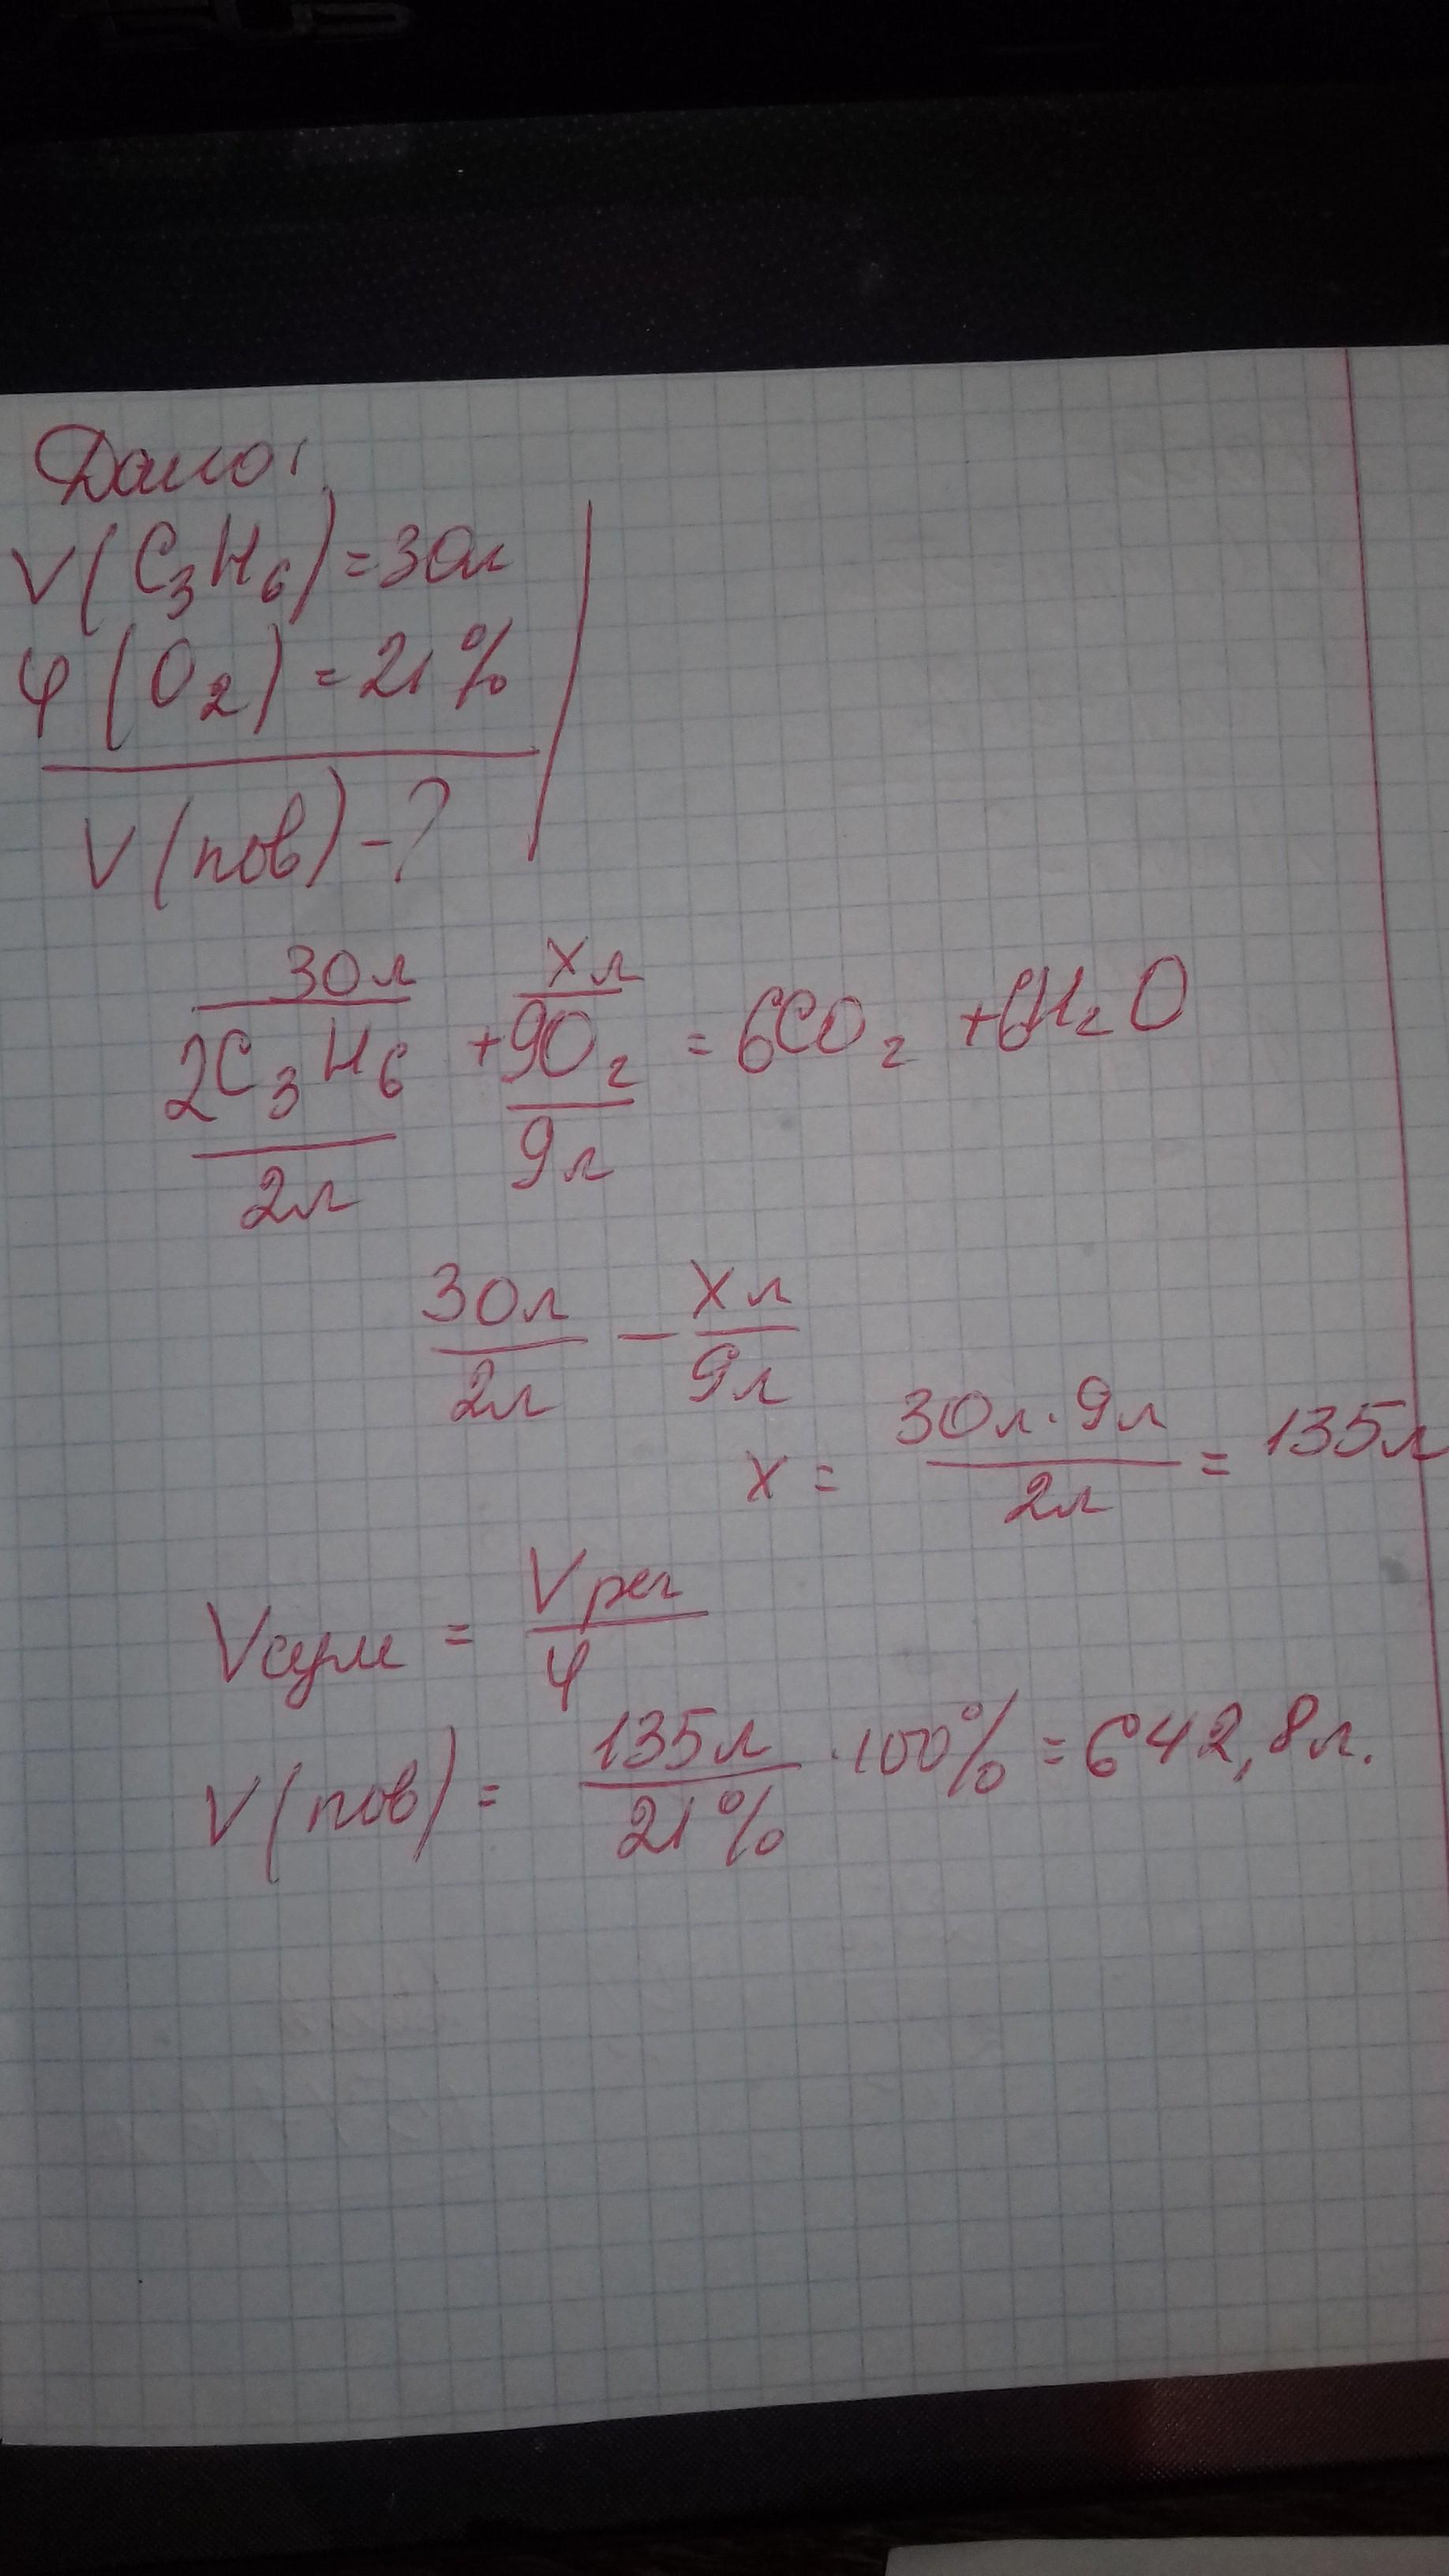 ASUS
Дано:
V(C₃H₆)=30л
φ(O₂)=21%
V(пов)-?
30л xл
2C₃H₆ +9O₂ = 6CO₂ +6H₂O
2л 9л
30л/2л — xл/9л
x = 30л·9л/2л = 135л
Vсум = Vреч/φ
V(пов) = 135л/21% ·100% = 642,8л.